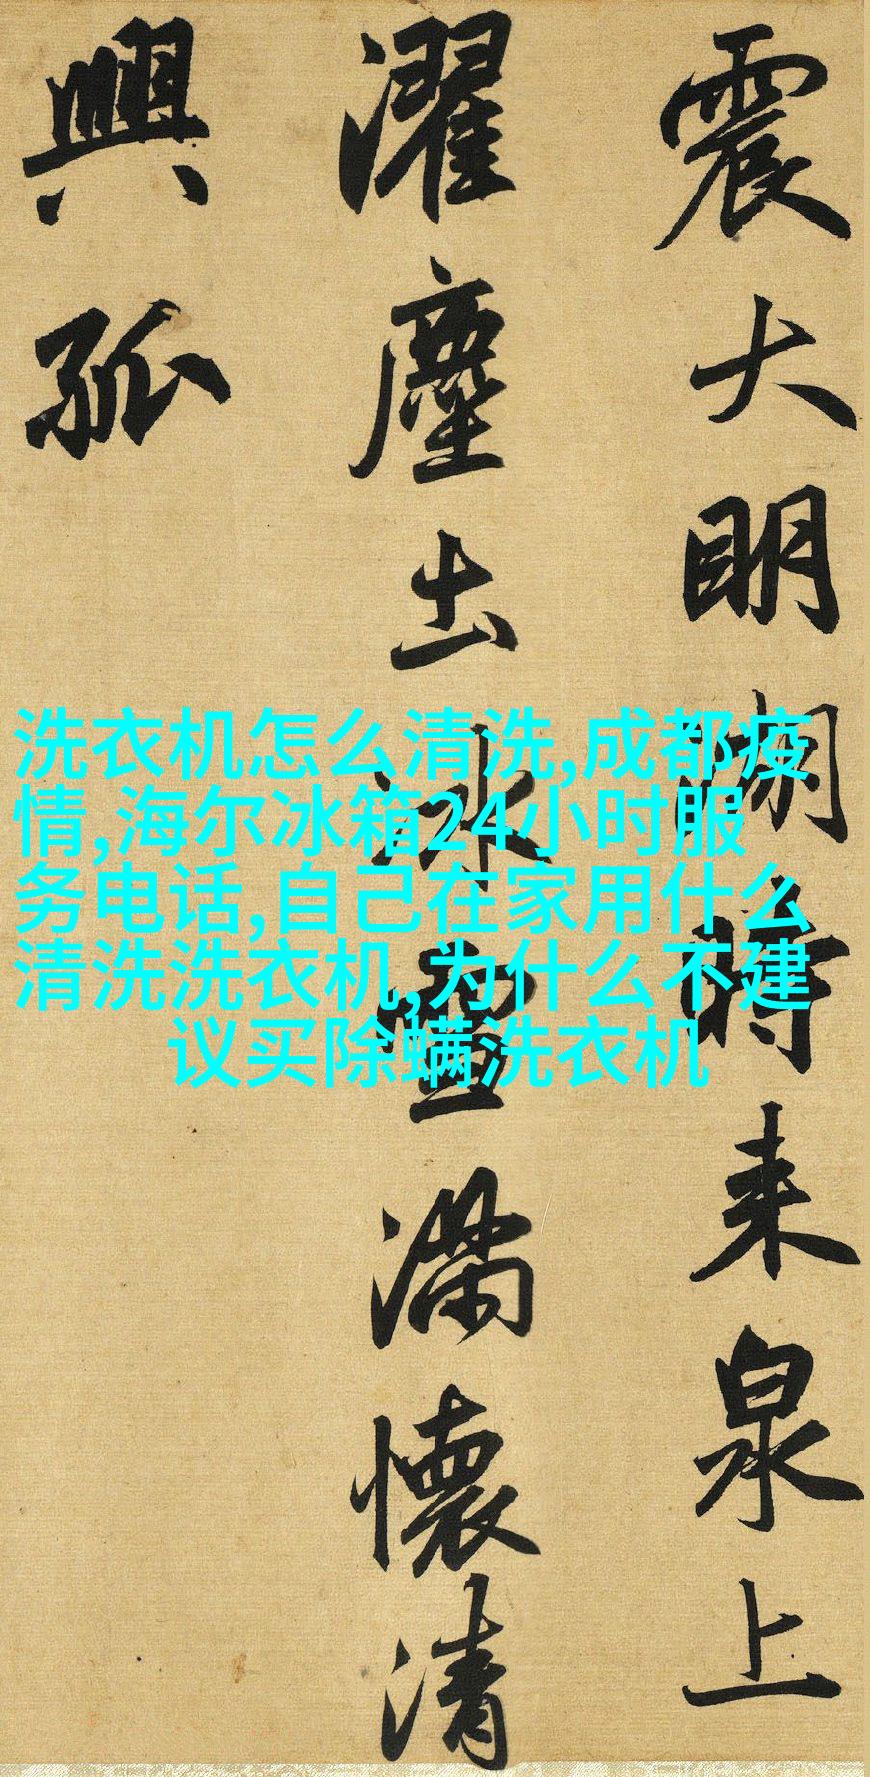 震大明湖時来泉上
濯塵土冰雪滿懷清
興孤
洗衣机怎么清洗,成都疫
情,海尔冰箱24小时服
务电话,自己在家用什么
清洗洗衣机,为什么不建
议买除螨洗衣机